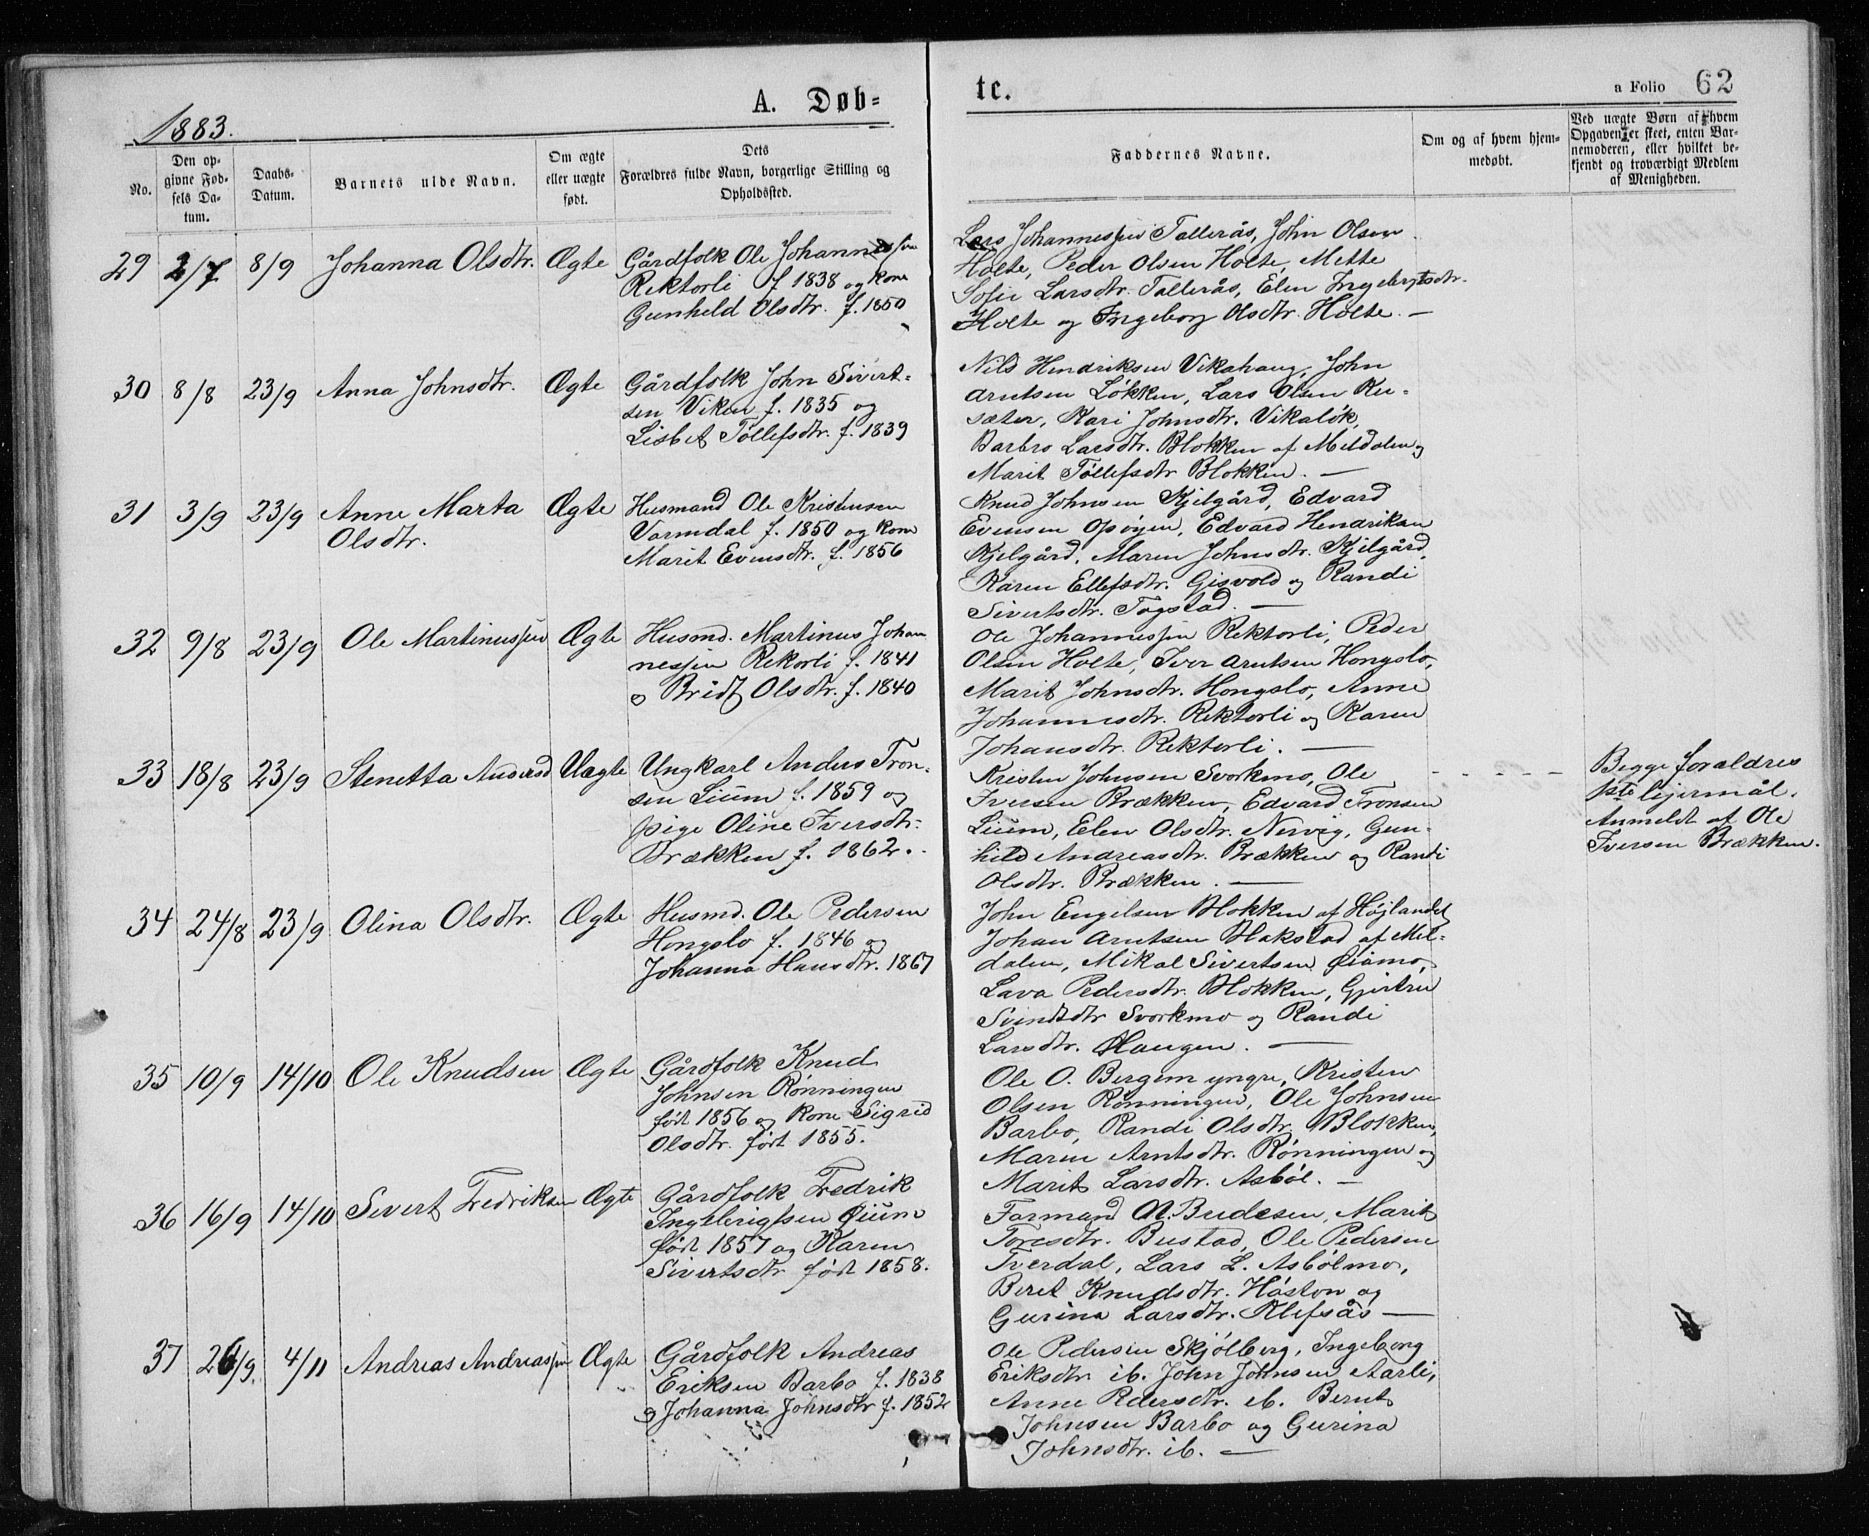 1883.
A. Døb-
te.
a Folio 62
No.
Den op-
givne Fød-
sels Da-
tum.
Daabs-
Datum.
Barnets ulde Navn.
Om ægte
eller uægte
født.
Dets
Forældres fulde Navn, borgerlige Stilling og
Opholdssted.
Faddernes Navne.
Om og af hvem hjem-
medøbt.
Ved uægte Børn af hvem
Opgaven er skeet, enten Bar-
nemoderen, eller hvilket be-
kjendt og troværdigt Medlem
af Menigheden.
29 2/7 8/9 Johanna Olsdtr. Ægte
Gårdfolk Ole Johannessen
Rektorli f. 1838 og Kone
Gunhild Olsdtr. f. 1850
Lars Johannessen Tallerås, John Olsen
Holte, Peder Olsen Holte, Mette
Sofie Larsdtr. Tallerås, Elen Ingebrigtsdtr.
Holte og Ingeborg Olsdtr. Holte. —
30 8/8 23/9 Anna Johnsdtr. Ægte
Gårdfolk John Sivert-
sen Viken f. 1835 og
Lisbet Tøllefsdtr. f. 1839
Nils Hendriksen Vikahaug, John
Arntsen Løkken, Lars Olsen Ru-
sæter, Kari Johnsdtr. Vikaløk,
Barbro Larsdtr. Blokken af Meldalen og
Marit Tøllefsdtr Blokken. —
31 3/9 23/9 Anne Marta Ægte
Olsdtr.
Husmand Ole Kristensen
Vormdal f. 1850 og Kone
Marit Evensdtr. f. 1856
Knud Johnsen Kjelgård, Edvard
Evensen Opøyen, Edvard Hendriksen
Kjelgård, Maren Johnsdtr. Kjelgård,
Karen Ellefsdtr. Gisvold og Randi
Sivertsdtr. Togstad. —
32 9/8 23/9 Ole Martinussen Ægte
Husmd. Martinus Johan
nessen Rekorli f. 1841
og Bridt Olsdtr. f. 1840
Ole Johannessen Rektorli, Peder
Olsen Holte, Iver Arntsen Hongslo,
Marit Johnsdtr. Hongslo, Anne
Johannesdtr. Rektorli og Karen
Johansdtr. Rektorli. —
33 18/8 23/9 Stenetta Andersd Uægte
Ungkarl Anders Tron-
sen Lium f. 1859 og
pige Oline Iversdtr.
Brækken f. 1862.
Kristen Johnsen Svorkmo, Ole
Iversen Brækken, Edvard Tronsen
Lium, Elen Olsdtr. Nervig, Gun-
hild Andreasdtr. Brækken og Randi
Olsdtr. Brækken. —
Begge foraldres
1ste lejermål.
Anmeldt af Ole
Iversen Brækken.
34 24/8 23/9 Olina Olsdtr. Ægte
Husmd. Ole Pedersen
Hongslo f. 1846 og
Johanna Hansdtr. 1867
John Engelsen Blokken af Højlandet
Johan Arntsen Blakstad af Mel-
dalen, Mikal Sivertsen Øiamo,
Lava Pedersdtr. Blokken, Gjertru
Svendsdtr Svorkmo og Randi
Larsdtr. Haugen. —
35 10/9 14/10 Ole Knudsen Ægte
Gårdfolk Knud
Johnsen Rønningen
født 1856 og Kone Sigrid
Olsdtr. født 1855.
Ole O. Bergem yngre, Kristen
Olsen Rønningen, Ole Johnsen
Barbo, Randi Olsdtr. Blokken,
Maren Arntsdtr. Rønningen og
Marit Larsdtr. Asbøl. —
36 16/9 14/10 Sivert Fredriksen Ægte
Gårdfolk Fredrik
Ingebrigtsen Øium
født 1857 og Karen
Sivertsdtr født 1858.
Formand A. Brudesen, Marit
Toresdtr. Bustad, Ole Pedersen
Tverdal, Lars L. Asbølmo,
Beret Knudsdtr. Høston og
Gurina Larsdtr. Klefsås —
37 26/9. 4/11 Andreas Andreassen Ægte
Gårdfolk Andreas
Eriksen Barbo f. 1838
og Johanna Johnsdtr f. 1852
Ole Pedersen Skjølberg, Ingeborg
Eriksdtr ib. John Johnsen Aarli,
Anne Pedersdtr. ib. Bernt
Johnsen Barbo og Gurina
Johnsdtr. ib. —